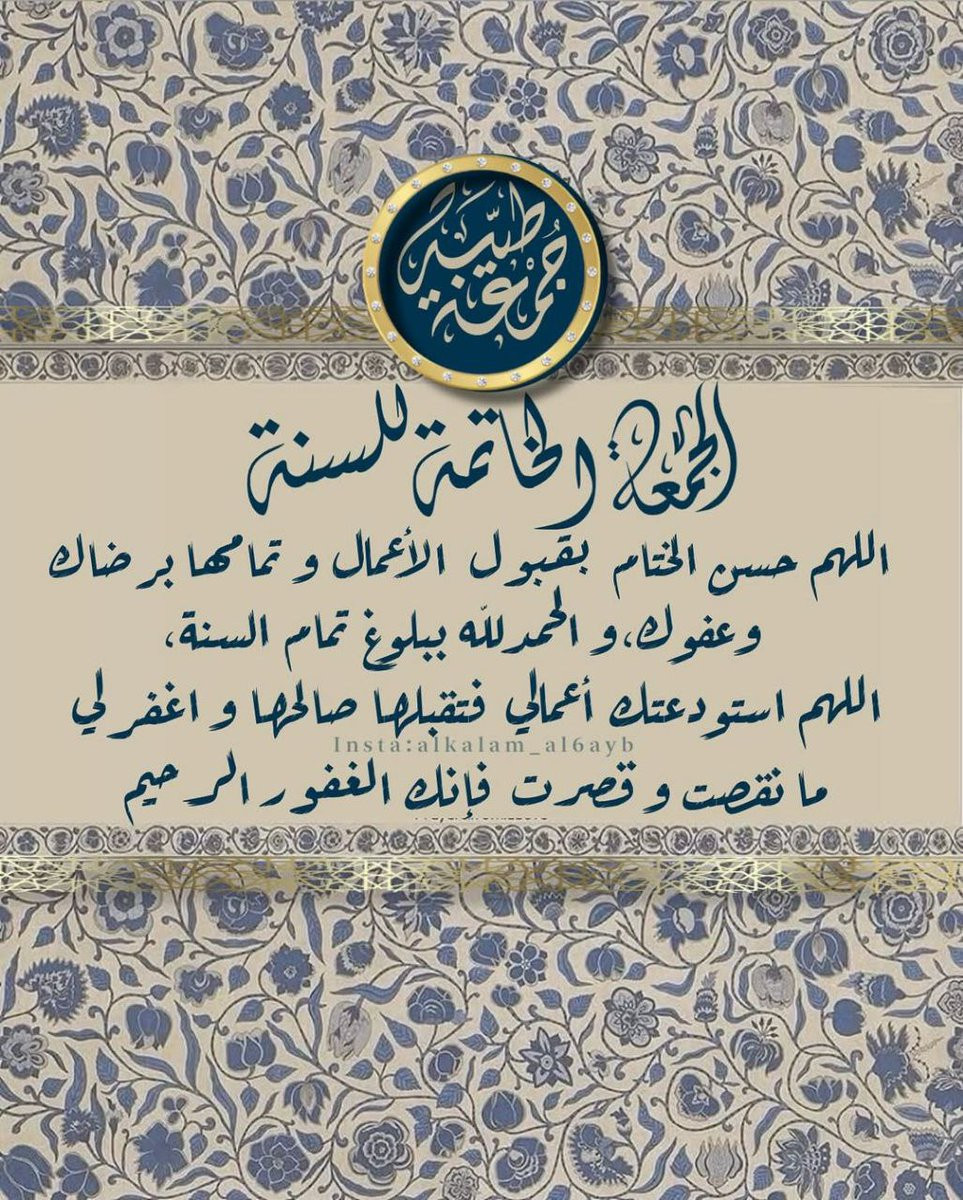 جُمعة طيّبة
الجمعة الخاتمة للسنة
اللهم حسن الختام بقبول الأعمال و تمامها برضاك
وعفوك،و الحمدلله ببلوغ تمام السنة،
اللهم استودعتك أعمالي فتقبلها صالحها و اغفرلي
Insta:alkalam_al6ayb
ما نقصت و قصرت فإنك الغفور الرحيم